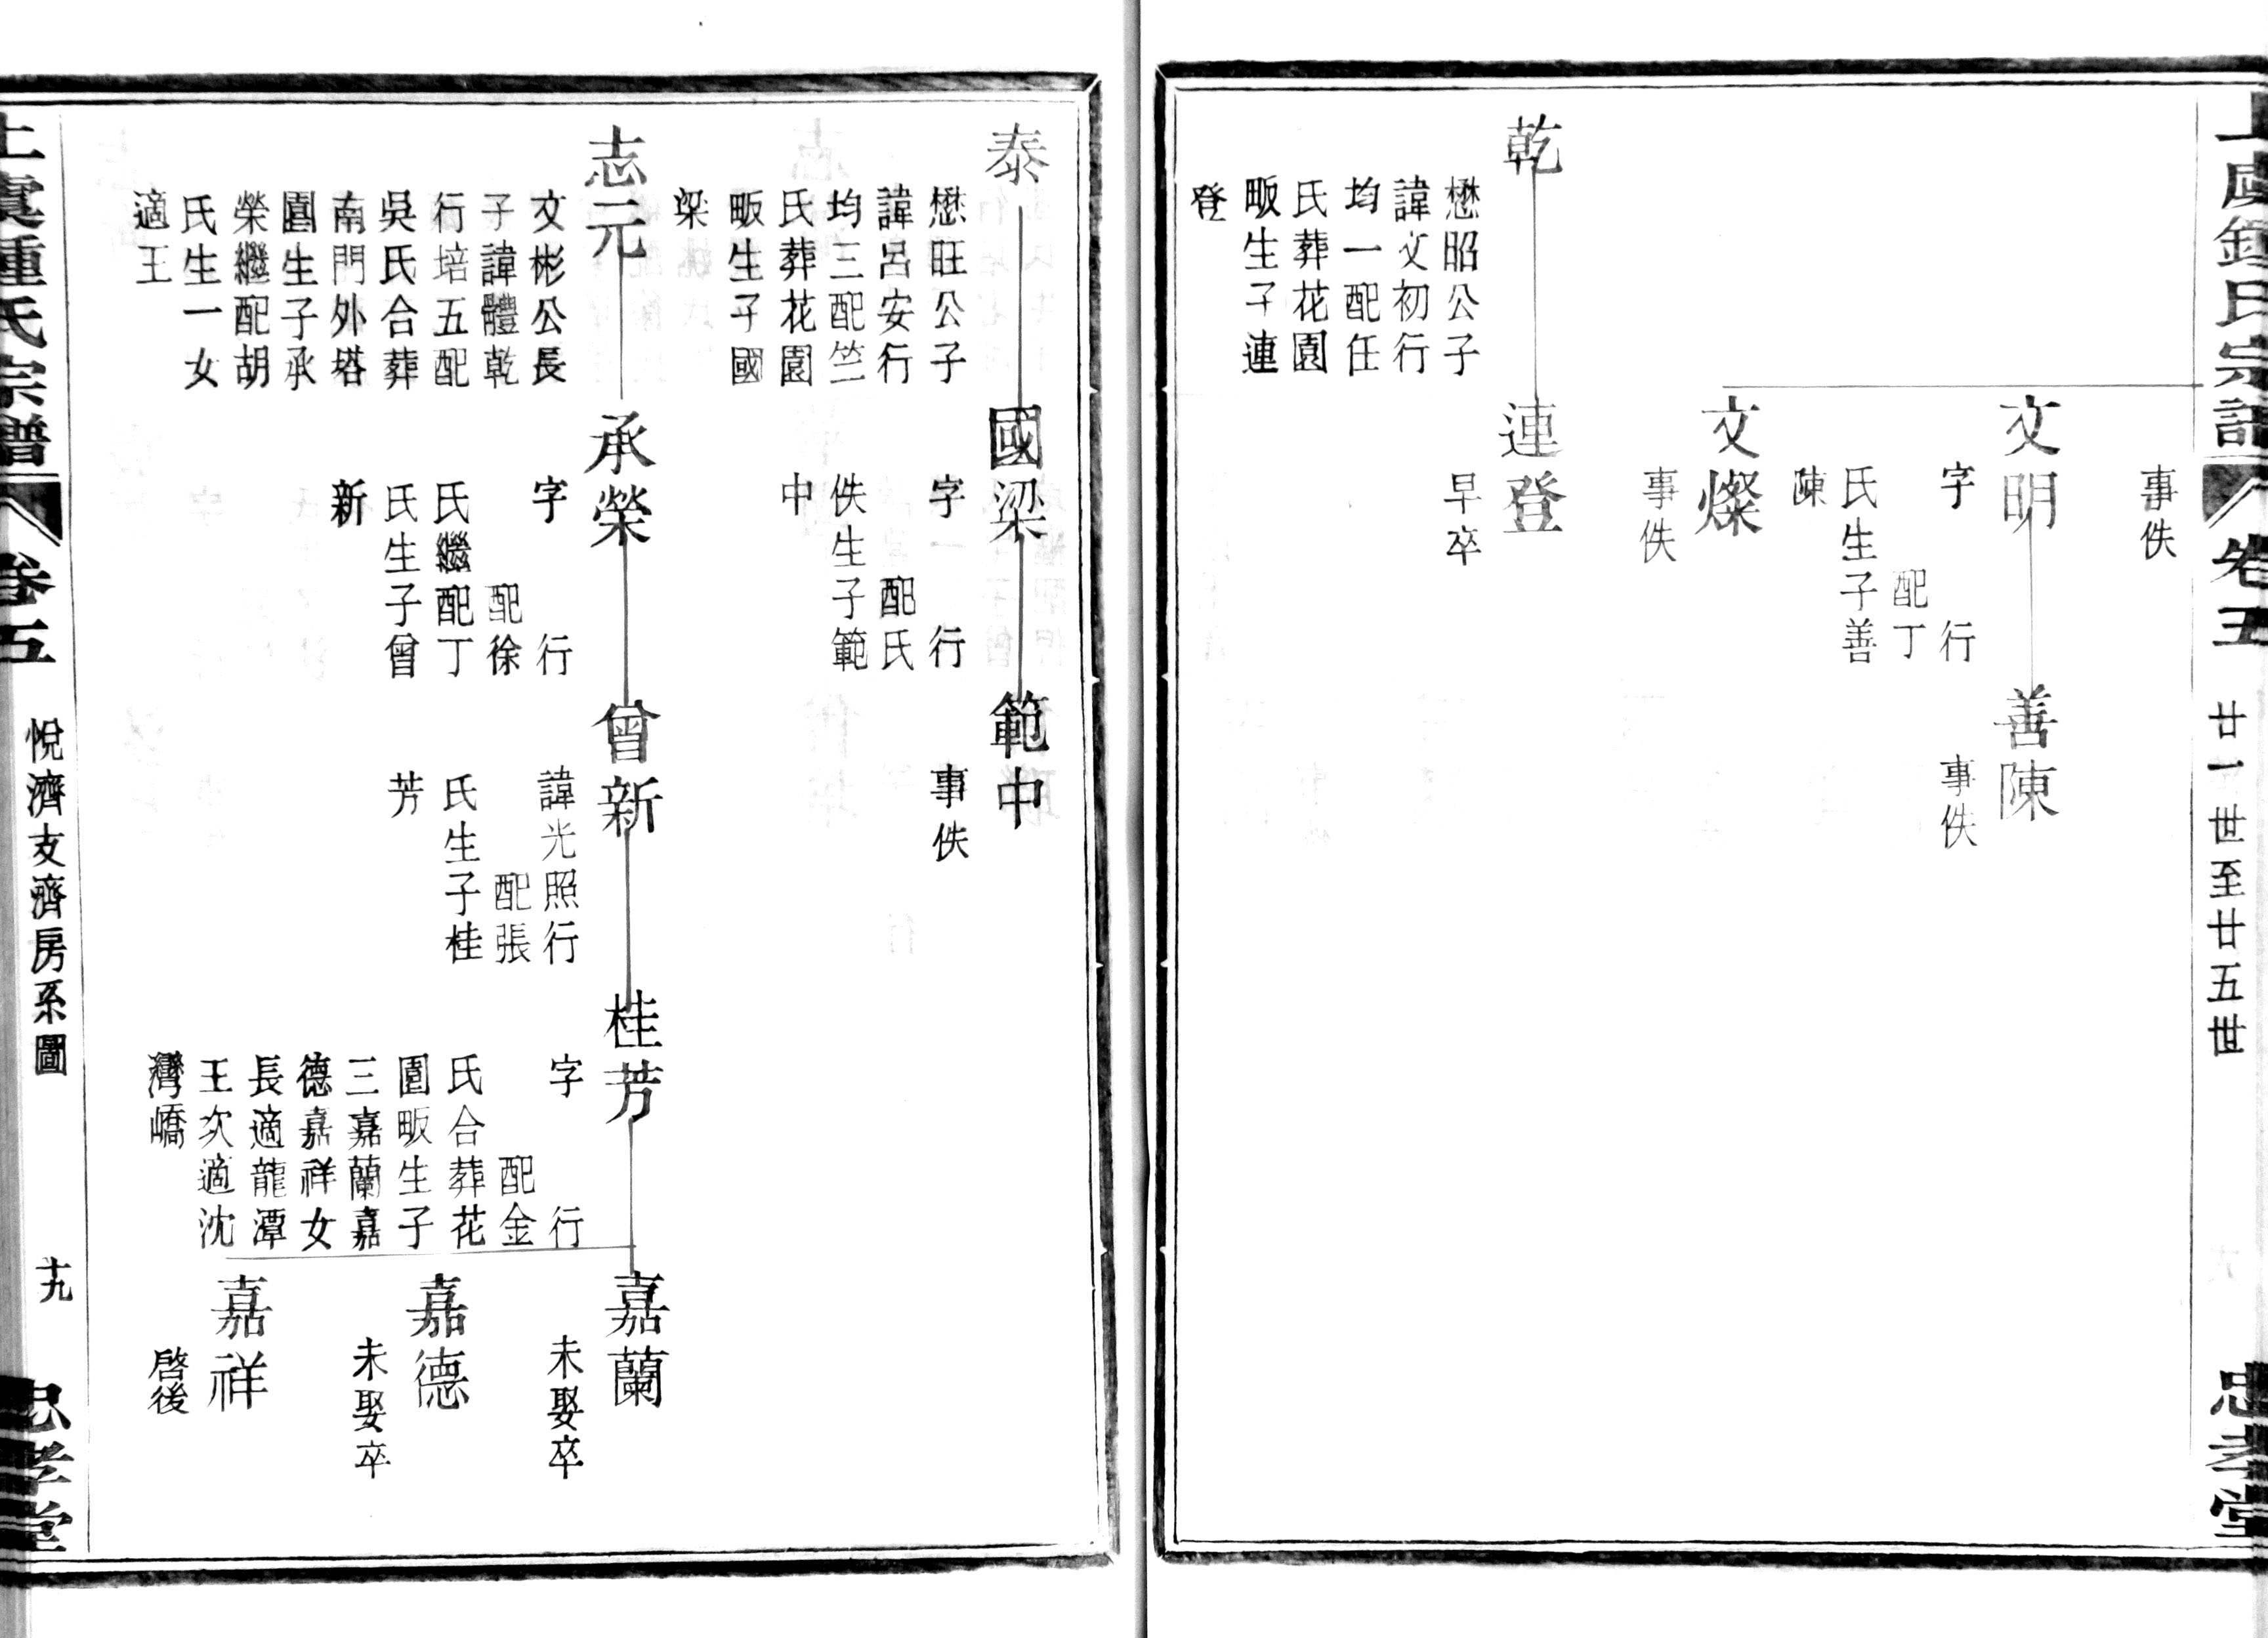 上虞鍾氏宗譜
卷五
廿一世至廿五世
忠孝堂
事佚
文明
字 行
配丁
氏生子善
陳
善陳
事佚
文燦
事佚
乾
懋昭公子
諱文初行
均一配任
氏葬花園
畈生子連
登
連登
早卒
泰
懋旺公子
諱呂安行
均三配竺
氏葬花園
畈生子國
梁
國梁
字 行
配氏
佚生子範
中
範中
事佚
志元
文彬公長
子諱體乾
行培五配
吳氏合葬
南門外塔
園生子承
榮繼配胡
氏生一女
適王
承榮
字 行
配徐
氏繼配丁
氏生子曾
新
曾新
諱光照行
配張
氏生子桂
芳
桂芳
字 行
配金
氏合葬花
園畈生子
三嘉蘭嘉
德嘉祥女
長適龍潭
王次適沈
灣嶠
嘉蘭
未娶卒
嘉德
未娶卒
嘉祥
啓後
上虞鍾氏宗譜
卷五
悅濟支濟房系圖
十九
忠孝堂